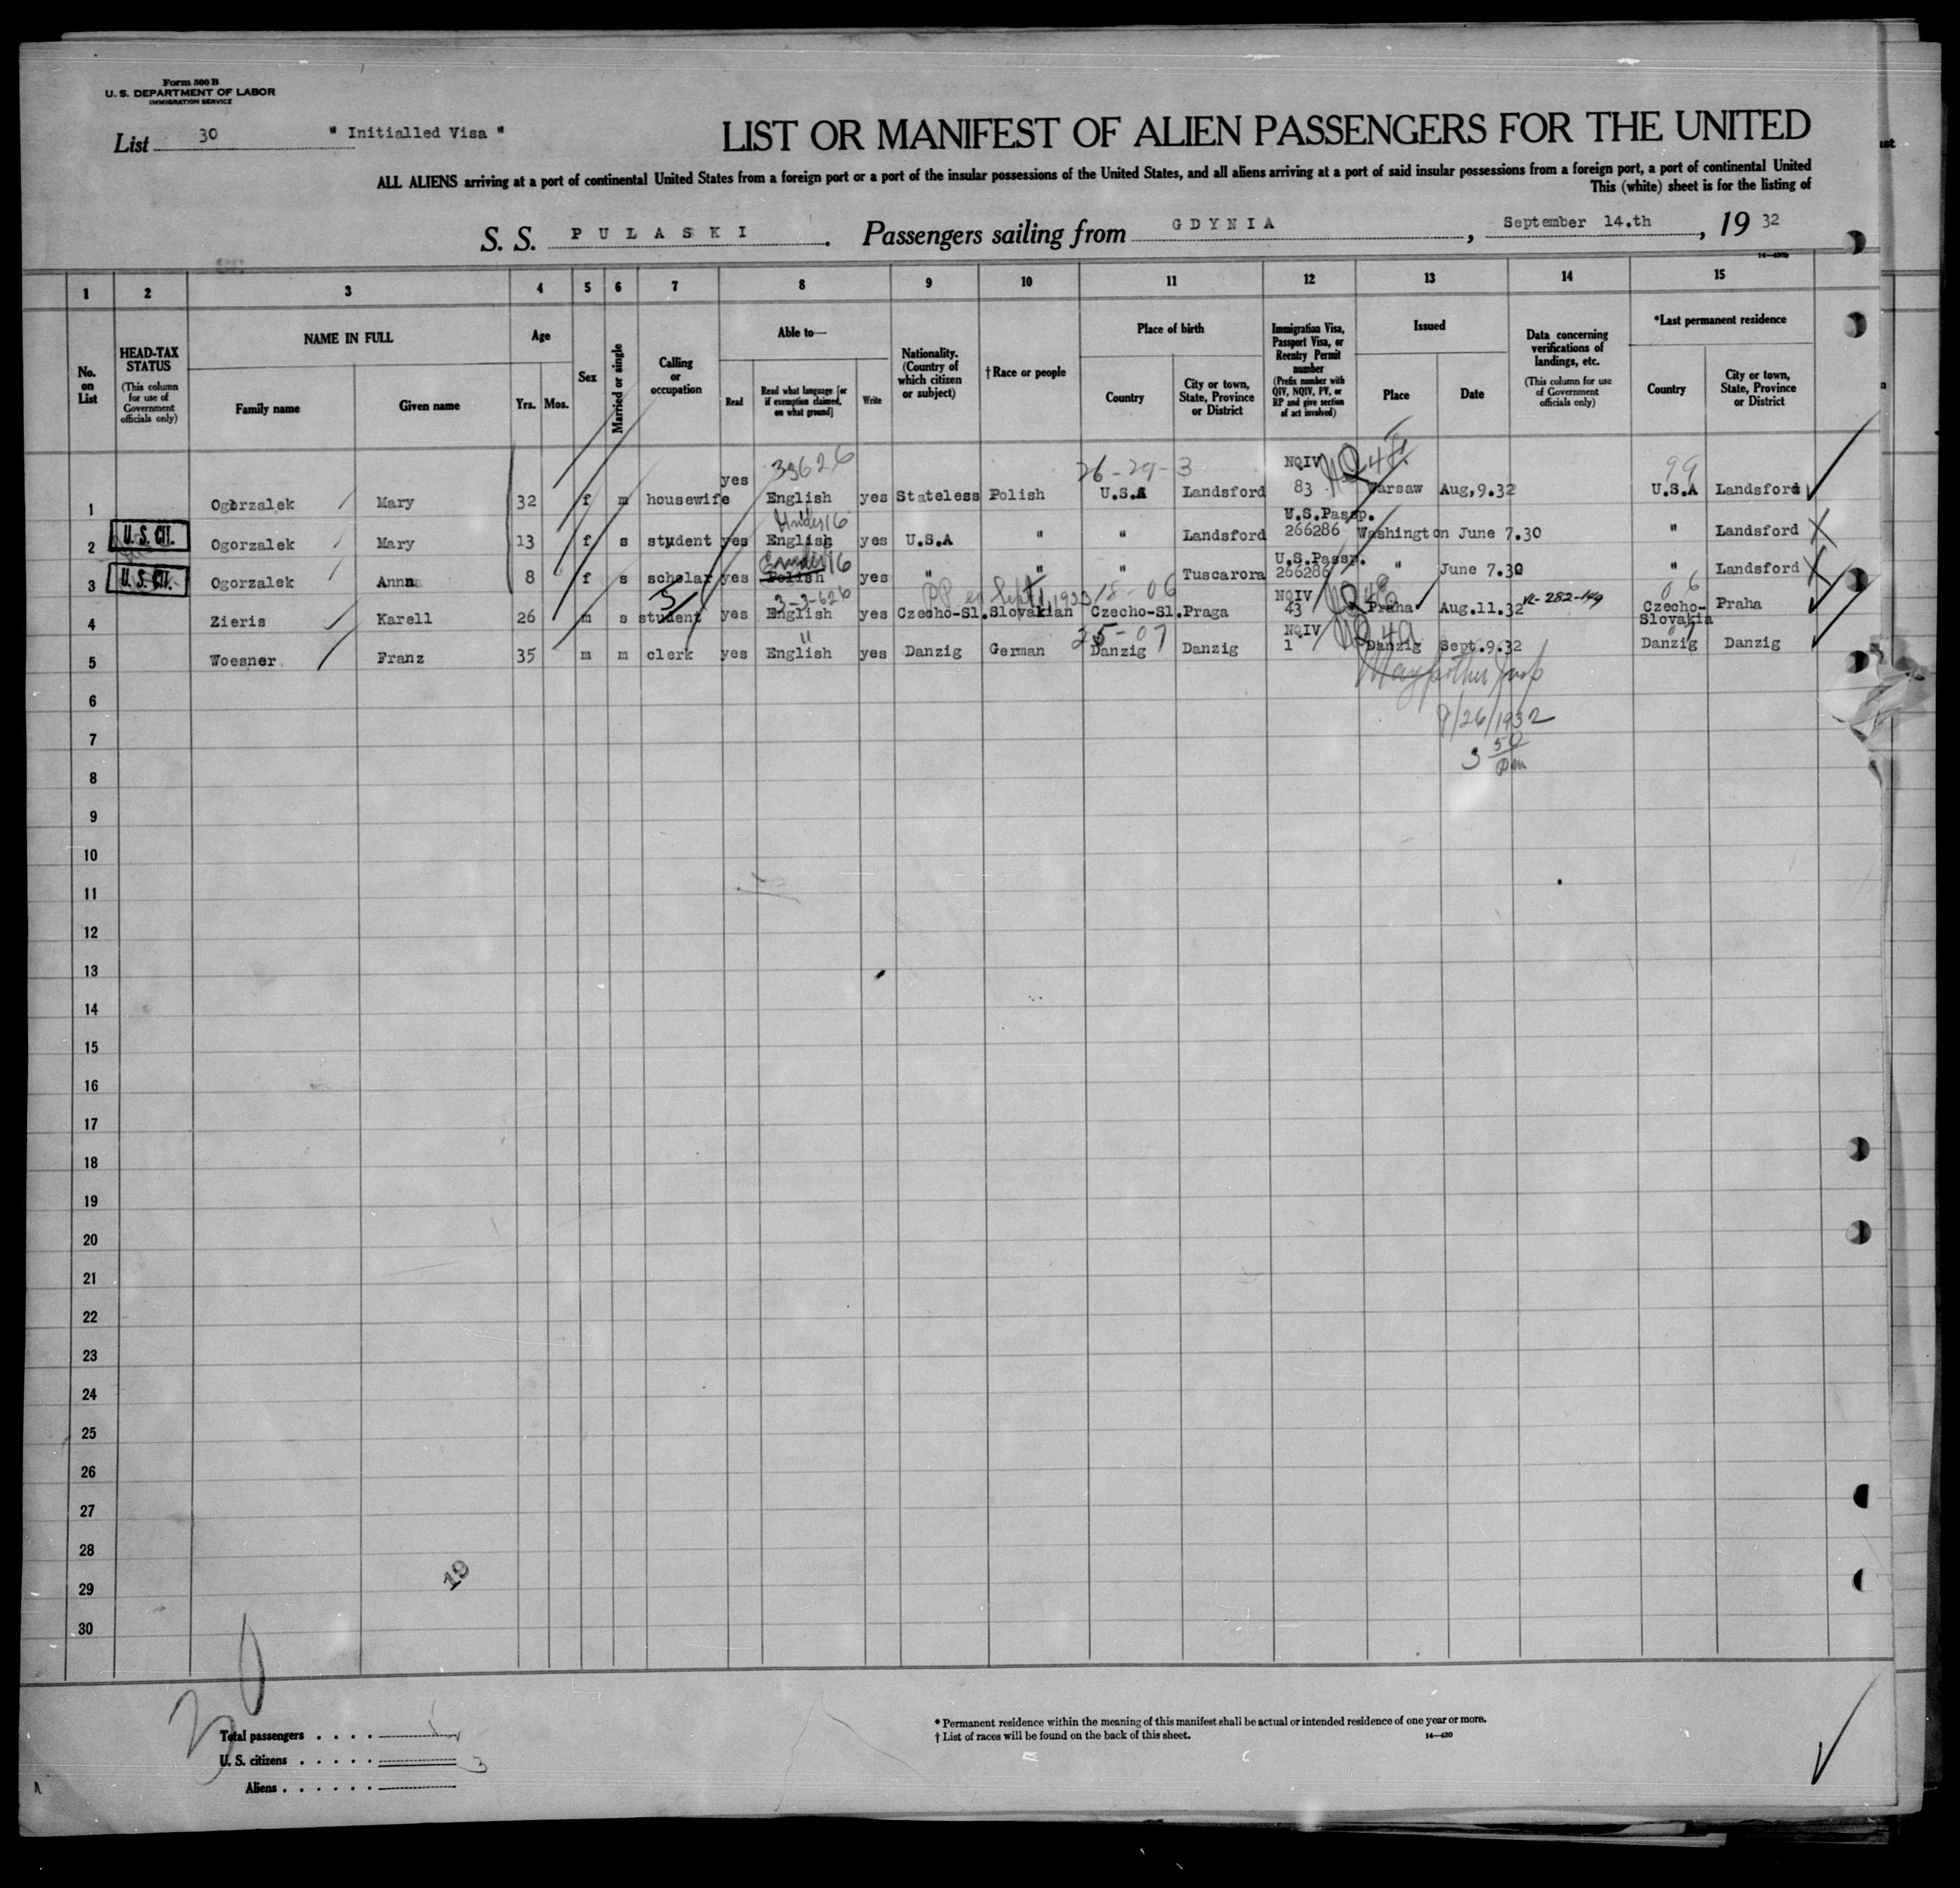 Form 500 B
U. S. DEPARTMENT OF LABOR
IMMIGRATION SERVICE
List 30 " Initialled Visa "
LIST OR MANIFEST OF ALIEN PASSENGERS FOR THE UNITED
ALL ALIENS arriving at a port of continental United States from a foreign port or a port of the insular possessions of the United States, and all aliens arriving at a port of said insular possessions from a foreign port, a port of continental United
This (white) sheet is for the listing of
S. S. PULASKI . Passengers sailing from GDYNIA , September 14.th , 19 32
14—430b
1 2 3 4 5 6 7 8 9 10 11 12 13 14 15
No. on List
HEAD-TAX STATUS (This column for use of Government officials only)
NAME IN FULL
Family name Given name
Age
Yrs. Mos.
Sex
Married or single
Calling or occupation
Able to—
Read Read what language [or if exemption claimed, on what ground] Write
Nationality. (Country of which citizen or subject)
†Race or people
Place of birth
Country City or town, State, Province or District
Immigration Visa, Passport Visa, or Reentry Permit number (Prefix number with QIV, NQIV, PV, or RP and give section of act involved)
Issued
Place Date
Data concerning verifications of landings, etc. (This column for use of Government officials only)
*Last permanent residence
Country City or town, State, Province or District
33626 26-29-3 NQIV NQ 4 99
1 Ogorzalek Mary 32 f m housewife yes English yes Stateless Polish U.S.A Landsford 83 Warsaw Aug,9.32 U.S.A Landsford
Under 16 U.S.Passp.
2 U.S. CIT. Ogorzalek Mary 13 f s student yes English yes U.S.A " " Landsford 266286 Washington June 7.30 " Landsford
Under 16 U.S.Passp.
3 U.S. CIT. Ogorzalek Anna 8 f s scholar yes Polish yes " " " Tuscarora 266286 " June 7.30 " Landsford
3-3-626 Sept 1, 1933 18-06 NQIV 06
4 Zieris Karell 26 m s student yes English yes Czecho-Sl. Slovakian Czecho-Sl. Praga 43 Praha Aug.11.32 VL-282-149 Czecho-Slovakia Praha
" 25-07 NQIV NQ 4 07
5 Woesner Franz 35 m m clerk yes English yes Danzig German Danzig Danzig 1 Danzig Sept.9.32 Danzig Danzig
Insp
6
9/26/1932
7
3 50 pm
8
9
10
11
12
13
14
15
16
17
18
19
20
21
22
23
24
25
26
27
28
29
19
30
30
Total passengers . . . .
U. S. citizens . . . . . 3
Aliens . . . . . .
* Permanent residence within the meaning of this manifest shall be actual or intended residence of one year or more.
† List of races will be found on the back of this sheet. 14—430